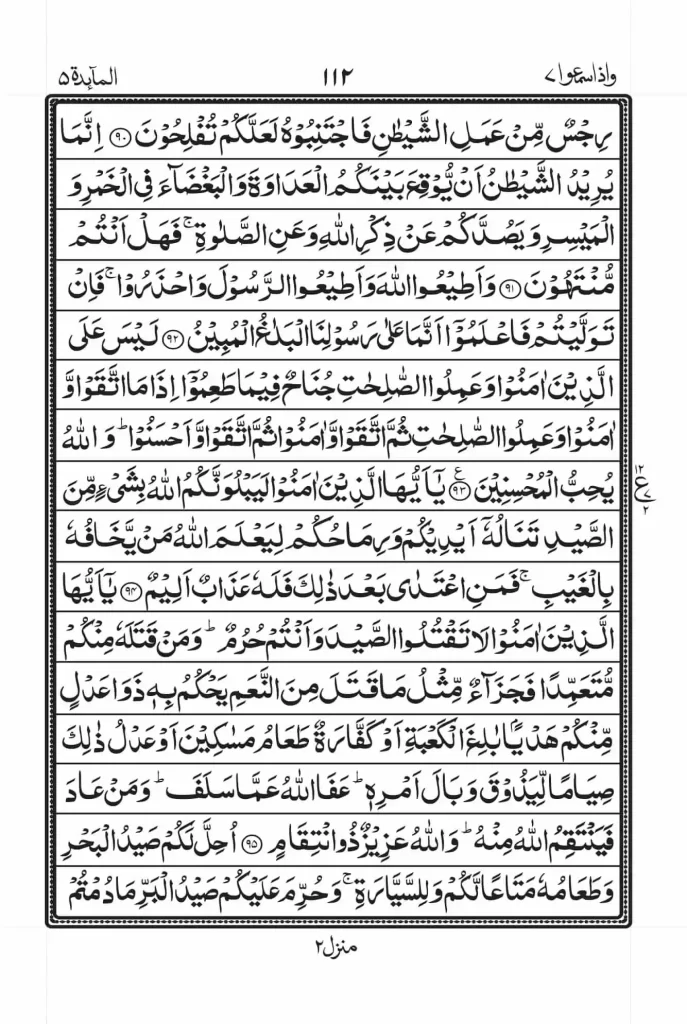 واذاسمعوا ٧ ١١٢ المآئدة ٥
رِجْسٌ مِّنْ عَمَلِ الشَّيْطٰنِ فَاجْتَنِبُوْهُ لَعَلَّكُمْ تُفْلِحُوْنَ ۝٩٠ اِنَّمَا
يُرِيْدُ الشَّيْطٰنُ اَنْ يُّوْقِعَ بَيْنَكُمُ الْعَدَاوَةَ وَالْبَغْضَآءَ فِي الْخَمْرِ وَ
الْمَيْسِرِ وَيَصُدَّكُمْ عَنْ ذِكْرِ اللّٰهِ وَعَنِ الصَّلٰوةِ ۚ فَهَلْ اَنْتُمْ
مُّنْتَهُوْنَ ۝٩١ وَاَطِيْعُوا اللّٰهَ وَاَطِيْعُوا الرَّسُوْلَ وَاحْذَرُوْا ۚ فَاِنْ
تَوَلَّيْتُمْ فَاعْلَمُوْٓا اَنَّمَا عَلٰى رَسُوْلِنَا الْبَلٰغُ الْمُبِيْنُ ۝٩٢ لَيْسَ عَلَى
الَّذِيْنَ اٰمَنُوْا وَعَمِلُوا الصّٰلِحٰتِ جُنَاحٌ فِيْمَا طَعِمُوْٓا اِذَا مَا اتَّقَوْا وَّ
اٰمَنُوْا وَعَمِلُوا الصّٰلِحٰتِ ثُمَّ اتَّقَوْا وَّاٰمَنُوْا ثُمَّ اتَّقَوْا وَّاَحْسَنُوْا ؕ وَ اللّٰهُ
يُحِبُّ الْمُحْسِنِيْنَ ۝٩٣ ع يٰٓاَيُّهَا الَّذِيْنَ اٰمَنُوْا لَيَبْلُوَنَّكُمُ اللّٰهُ بِشَيْءٍ مِّنَ
١٢ ع ٧ ٢
الصَّيْدِ تَنَالُهٗٓ اَيْدِيْكُمْ وَرِمَاحُكُمْ لِيَعْلَمَ اللّٰهُ مَنْ يَّخَافُهٗ
بِالْغَيْبِ ۚ فَمَنِ اعْتَدٰى بَعْدَ ذٰلِكَ فَلَهٗ عَذَابٌ اَلِيْمٌ ۝٩٤ يٰٓاَيُّهَا
الَّذِيْنَ اٰمَنُوْا لَا تَقْتُلُوا الصَّيْدَ وَاَنْتُمْ حُرُمٌ ؕ وَمَنْ قَتَلَهٗ مِنْكُمْ
مُّتَعَمِّدًا فَجَزَآءٌ مِّثْلُ مَا قَتَلَ مِنَ النَّعَمِ يَحْكُمُ بِهٖ ذَوَا عَدْلٍ
مِّنْكُمْ هَدْيًۢا بٰلِغَ الْكَعْبَةِ اَوْ كَفَّارَةٌ طَعَامُ مَسٰكِيْنَ اَوْ عَدْلُ ذٰلِكَ
صِيَامًا لِّيَذُوْقَ وَبَالَ اَمْرِهٖ ؕ عَفَا اللّٰهُ عَمَّا سَلَفَ ؕ وَمَنْ عَادَ
فَيَنْتَقِمُ اللّٰهُ مِنْهُ ؕ وَاللّٰهُ عَزِيْزٌ ذُو انْتِقَامٍ ۝٩٥ اُحِلَّ لَكُمْ صَيْدُ الْبَحْرِ
وَطَعَامُهٗ مَتَاعًا لَّكُمْ وَلِلسَّيَّارَةِ ۚ وَحُرِّمَ عَلَيْكُمْ صَيْدُ الْبَرِّ مَا دُمْتُمْ
منزل ٢